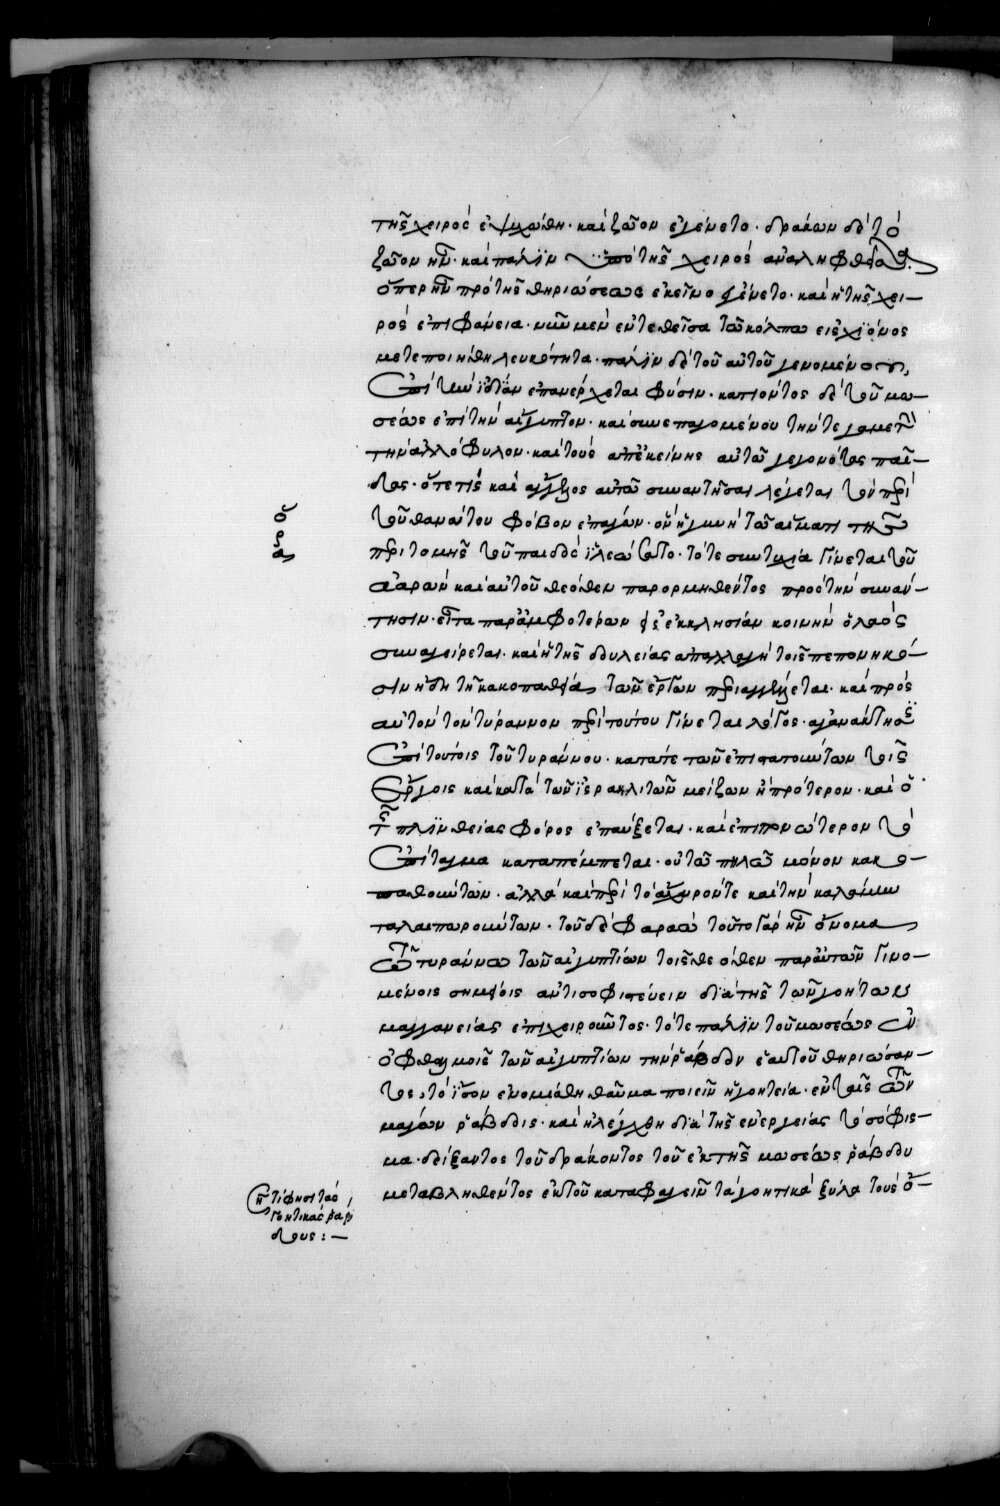 τῆς χειρὸς ἐψυχώθη· καὶ ζῶον ἐγένετο· δράκων δὲ τὸ
ζῶον ἦν· καὶ πάλιν ὑπὸ τῆς χειρὸς ἀναληφθεὶς
ὅπερ ἦν πρὸ τῆς θηριώσεως ἐκεῖνο γίνεται· καὶ ἡ τῆς χει-
ρὸς ἐπιφάνεια· νῦν μὲν ἐντεθεῖσα τῷ κόλπῳ εἰς χιόνος
μετεποιήθη λευκότητα· πάλιν δὲ τοῦ αὐτοῦ γενομένου,
ἐπὶ τὴν ἰδίαν ἐπανέρχεται φύσιν· κατιόντος δὲ τοῦ μω-
σέως ἐπὶ τὴν αἴγυπτον· καὶ συνεπαγομένου τήν τε γαμετὴν
τὴν ἀλλόφυλον· καὶ τοὺς ἀπ' ἐκείνης αὐτῷ γεγονότας παῖ-
δας· ὅτε τις καὶ ἄγγελος αὐτῷ συναντῆσαι λέγεται τὸν περὶ
τοῦ θανάτου φόβον ἐπάγων· ὃν ἡ γυνὴ τῷ αἵματι τῆς
περιτομῆς τοῦ παιδὸς ἱλεώσατο· τότε συντυχία γίνεται τοῦ
ἀαρὼν καὶ αὐτοῦ θεόθεν παρορμηθέντος πρὸς τὴν συνάν-
τησιν· εἶτα παρ' ἀμφοτέρων εἰς ἐκκλησίαν κοινὴν ὁ λαὸς
συναγείρεται· καὶ ἡ τῆς δουλείας ἀπαλλαγὴ τοῖς πεπονηκό-
σιν ἤδη τῇ κακοπαθείᾳ τῶν ἔργων περιαγγέλεται· καὶ πρὸς
αὐτὸν τὸν τύραννον περὶ τούτου γίνεται λόγος· ἀγανάκτησις
ἐπὶ τούτοις τοῦ τυράννου· κατά τε τῶν ἐπιστατούντων τοῖς
ἔργοις καὶ κατὰ τῶν ἰσραηλιτῶν μείζων ἢ πρότερον· καὶ ὁ
τῆς πλινθείας φόρος ἐπαύξεται· καὶ ἐπιπονώτερον τὸ
ἐπίταγμα καταπέμπεται· οὐ τῷ πηλῷ μόνον κακο-
παθούντων· ἀλλὰ καὶ περὶ τὸ ἄχυρόν τε καὶ τὴν καλάμην
ταλαιπωρούντων· τοῦ δὲ φαραὼ τοῦτο γὰρ ἦν ὄνομα
τῷ τυράννῳ τῶν αἰγυπτίων τοῖς θεόθεν παρ' αὐτῶν γινο-
μένοις σημείοις ἀντισοφιστεύειν διὰ τῆς τῶν γοήτων
μαγγανείας ἐπιχειροῦντος· τότε πάλιν τοῦ μωσέως ἐν
ὀφθαλμοῖς τῶν αἰγυπτίων τὴν ῥάβδον ἑαυτοῦ θηριώσαν-
τος, τὸ ἴσον ἐνομίσθη θαῦμα ποιεῖν ἡ γοητεία· ἐν ταῖς τῶν
μάγων ῥάβδοις· καὶ ἠλέγχθη διὰ τῆς ἐνεργείας τὸ σόφις-
μα· δείξαντος τοῦ δράκοντος τοῦ ἐκ τῆς μωσέως ῥάβδου
μεταβληθέντος ἐκ τοῦ καταφαγεῖν τὰ γοητικὰ ξύλα τοὺς ὄ-
τί φησι τὰς
γοητικὰς ῥάβ
δους :—